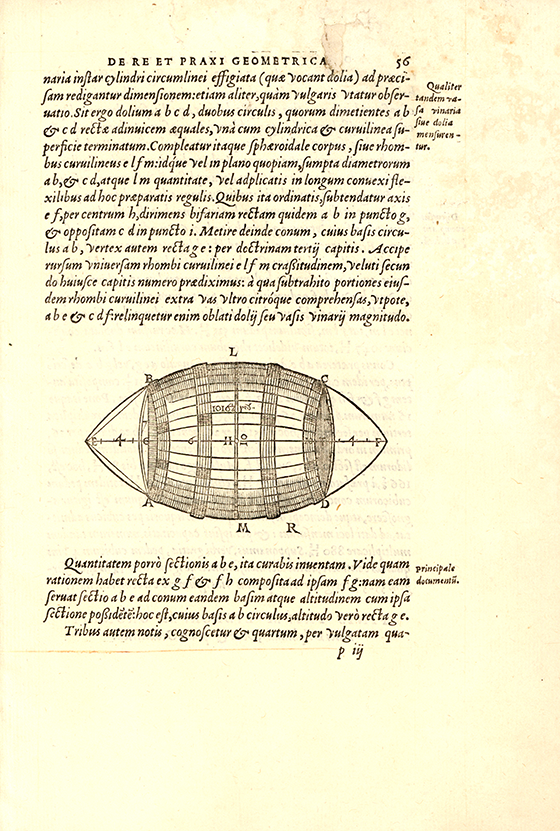 DE RE ET PRAXI GEOMETRICA
56
naria inſtar cylindri circumlinei effigiata (quæ vocant dolia) ad præci-
ſam redigantur dimenſionem: etiam aliter, quàm vulgaris vtatur obſer-
uatio. Sit ergo dolium a b c d, duobus circulis, quorum dimetientes a b
& c d rectæ adinuicem æquales, vnà cum cylindrica & curuilinea ſu-
perficie terminatum. Compleatur itaque ſphæroidale corpus, ſiue rhom-
bus curuilineus e l f m: idque vel in plano quopiam, ſumpta diametrorum
a b, & c d, atque l m quantitate, vel adplicatis in longum conuexi fle-
xilibus ad hoc præparatis regulis. Quibus ita ordinatis, ſubtendatur axis
e f, per centrum h, dirimens bifariam rectam quidem a b in puncto g,
& oppoſitam c d in puncto i. Metire deinde conum, cuius baſis circu-
lus a b, vertex autem recta g e: per doctrinam tertij capitis. Accipe
rurſum vniuerſam rhombi curuilinei e l f m craſſitudinem, veluti ſecun
do huiuſce capitis numero prædiximus: à qua ſubtrahito portiones eiuſ-
dem rhombi curuilinei extra vas vltro citróque comprehenſas, vtpote,
a b e & c d f: relinquetur enim oblati dolij ſeu vaſis vinarij magnitudo.
Qualiter
tandem va-
ſa vinaria
ſiue dolia
menſuren-
tur.
L
B
C
10162
E
4
G
6
H
10
4
F
A
D
M
R
Quantitatem porrò ſectionis a b e, ita curabis inuentam. Vide quam
rationem habet recta ex g f & f h compoſita ad ipſam f g: nam eam
ſeruat ſectio a b e ad conum eandem baſim atque altitudinem cum ipſa
ſectione poßidẽtẽ: hoc eſt, cuius baſis a b circulus, altitudo verò recta g e.
Tribus autem notis, cognoſcetur & quartum, per vulgatam qua-
principale
documentũ.
p iij